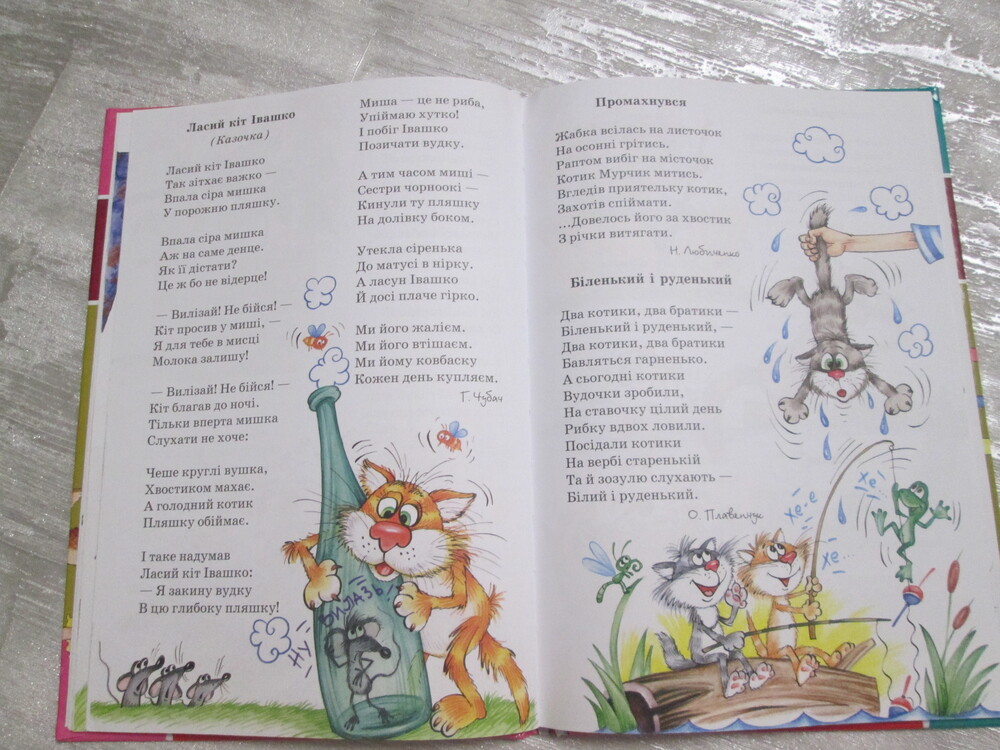 Ласий кіт Івашко
(Казочка)
Ласий кіт Івашко
Так зітхає важко —
Впала сіра мишка
У порожню пляшку.
Впала сіра мишка
Аж на саме денце.
Як її дістати?
Це ж бо не відерце!
— Вилізай! Не бійся! —
Кіт просив у миші, —
Я для тебе в мисці
Молока залишу!
— Вилізай! Не бійся! —
Кіт благав до ночі.
Тільки вперта мишка
Слухати не хоче:
Чеше круглі вушка,
Хвостиком махає.
А голодний котик
Пляшку обіймає.
І таке надумав
Ласий кіт Івашко:
— Я закину вудку
В цю глибоку пляшку!
Миша — це не риба,
Упіймаю хутко!
І побіг Івашко
Позичати вудку.
А тим часом миші —
Сестри чорноокі —
Кинули ту пляшку
На долівку боком.
Утекла сіренька
До матусі в нірку.
А ласун Івашко
Й досі плаче гірко.
Ми його жалієм.
Ми його втішаєм.
Ми йому ковбаску
Кожен день купляєм.
Г. Чубач
НУ ВИЛАЗЬ
Промахнувся
Жабка всілась на листочок
На осонні грітись.
Раптом вибіг на місточок
Котик Мурчик митись.
Вгледів приятельку котик,
Захотів спіймати.
...Довелось його за хвостик
З річки витягати.
Н. Любиченко
Біленький і руденький
Два котики, два братики —
Біленький і руденький, —
Два котики, два братики
Бавляться гарненько.
А сьогодні котики
Вудочки зробили,
На ставочку цілий день
Рибку вдвох ловили.
Посідали котики
На вербі старенькій
Та й зозулю слухають —
Білий і руденький.
О. Плавенчук
ХЕ-Е
ХЕ...
ХЕ...